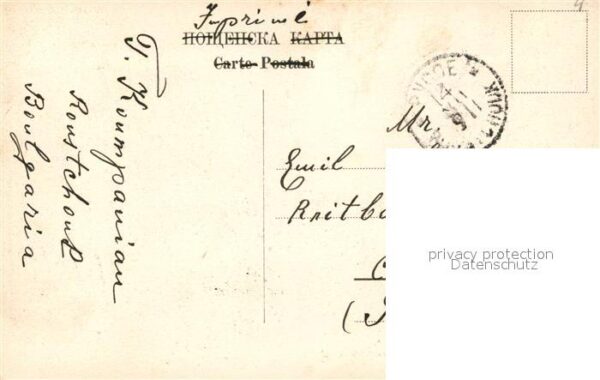 Imprimé
ПОЩЕНСКА КАРТА
Carte Postala
T. Koumpanian
Roustchouk
Boulgaria
Mr
Emil
privacy protection
Datenschutz